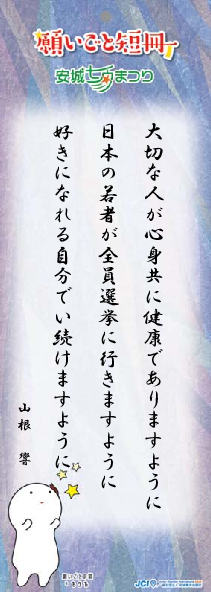 願いごと短冊
安城七夕まつり
大切な人が心身共に健康でありますように
日本の若者が全員選挙に行きますように
好きになれる自分でい続けますように
山根 響
願いごと短冊
JCI